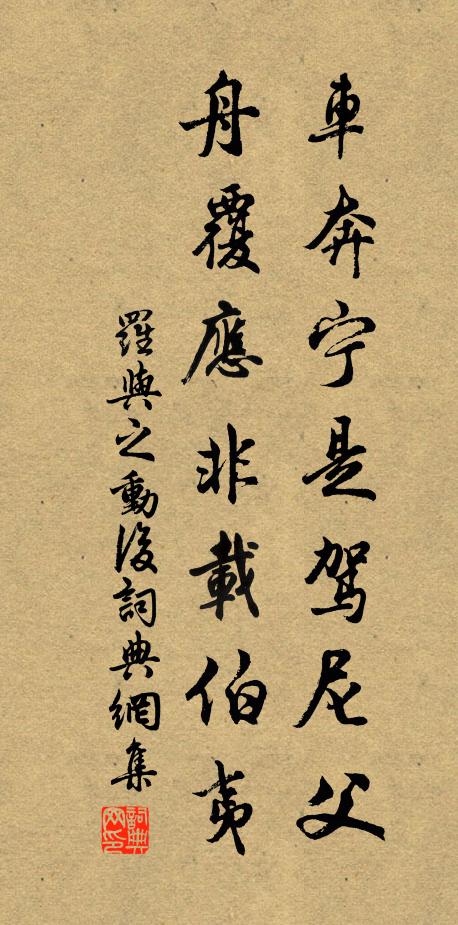 車奔宁是駕尼父
舟覆應非載伯夷
羅與之動後詞典網集
詞典网印